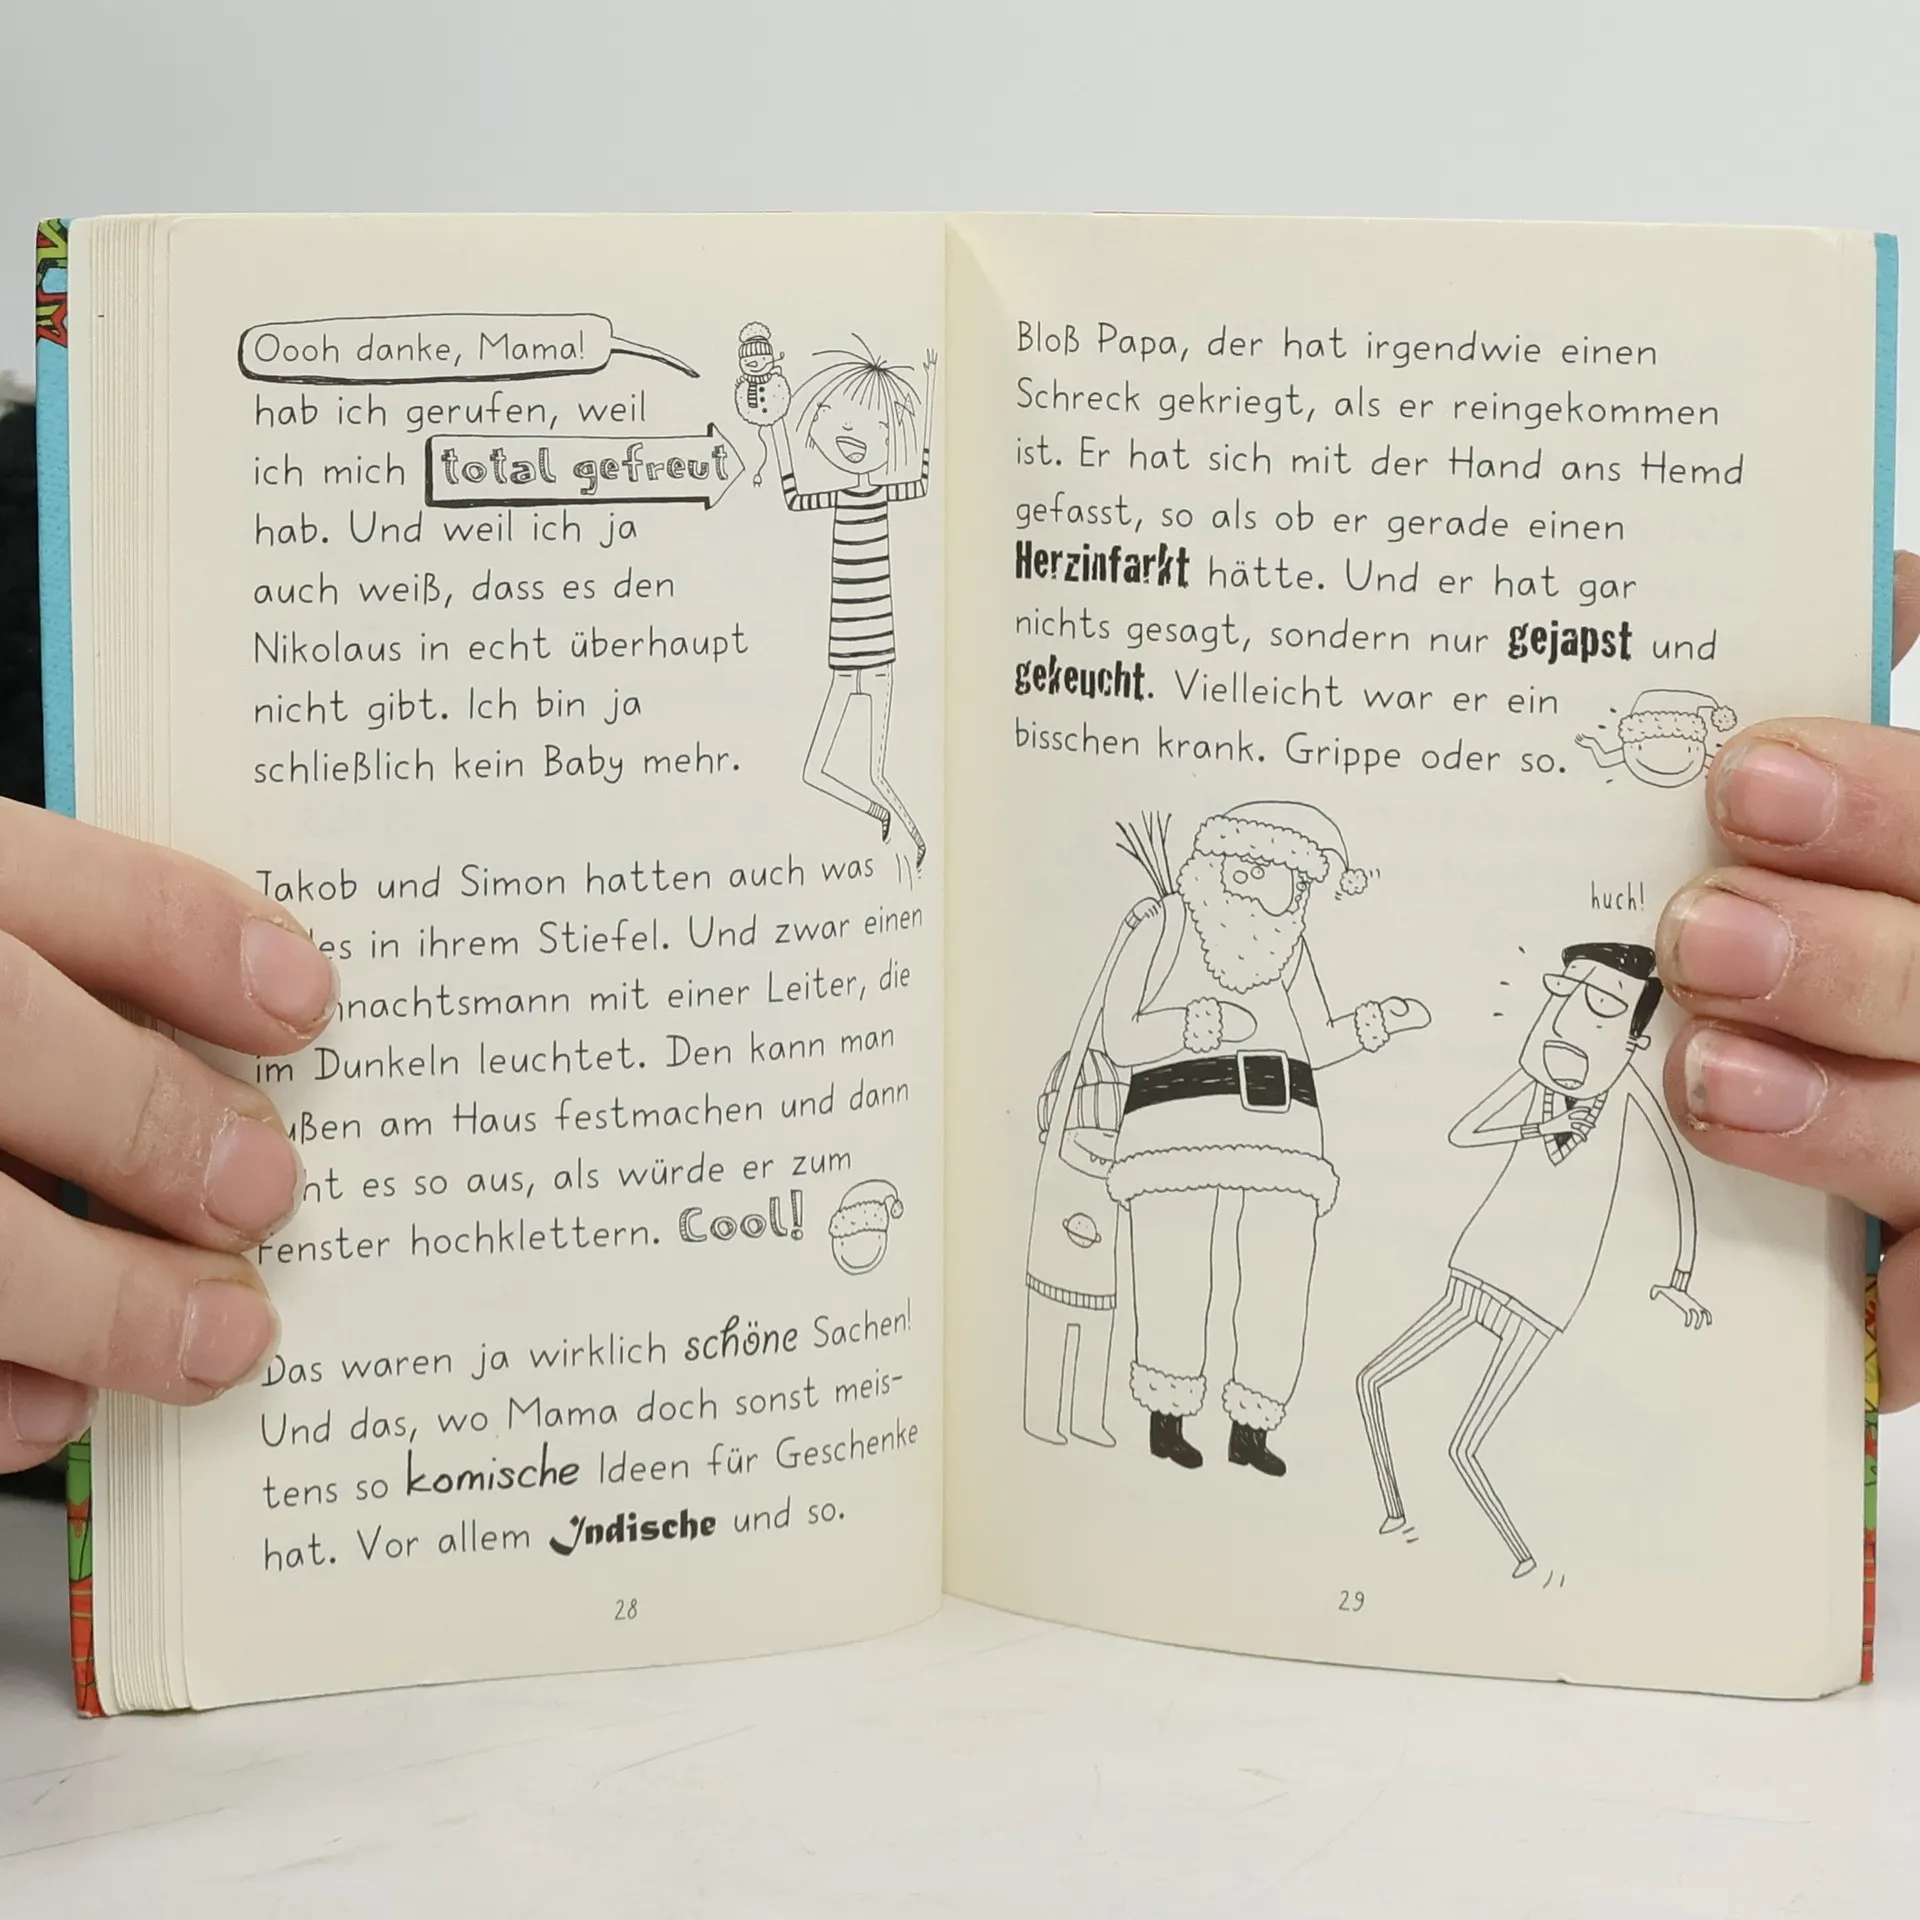 Oooh danke, Mama!
hab ich gerufen, weil
ich mich total gefreut
hab. Und weil ich ja
auch weiß, dass es den
Nikolaus in echt überhaupt
nicht gibt. Ich bin ja
schließlich kein Baby mehr.
Jakob und Simon hatten auch was
in ihrem Stiefel. Und zwar einen
mit einer Leiter, die
im Dunkeln leuchtet. Den kann man
am Haus festmachen und dann
es so aus, als würde er zum
Fenster hochklettern. Cool!
Das waren ja wirklich schöne Sachen!
Und das, wo Mama doch sonst meis-
tens so komische Ideen für Geschenke
hat. Vor allem Indische und so.
28
Bloß Papa, der hat irgendwie einen
Schreck gekriegt, als er reingekommen
ist. Er hat sich mit der Hand ans Hemd
gefasst, so als ob er gerade einen
Herzinfarkt hätte. Und er hat gar
nichts gesagt, sondern nur gejapst und
gekeucht. Vielleicht war er ein
bisschen krank. Grippe oder so.
huch!
29